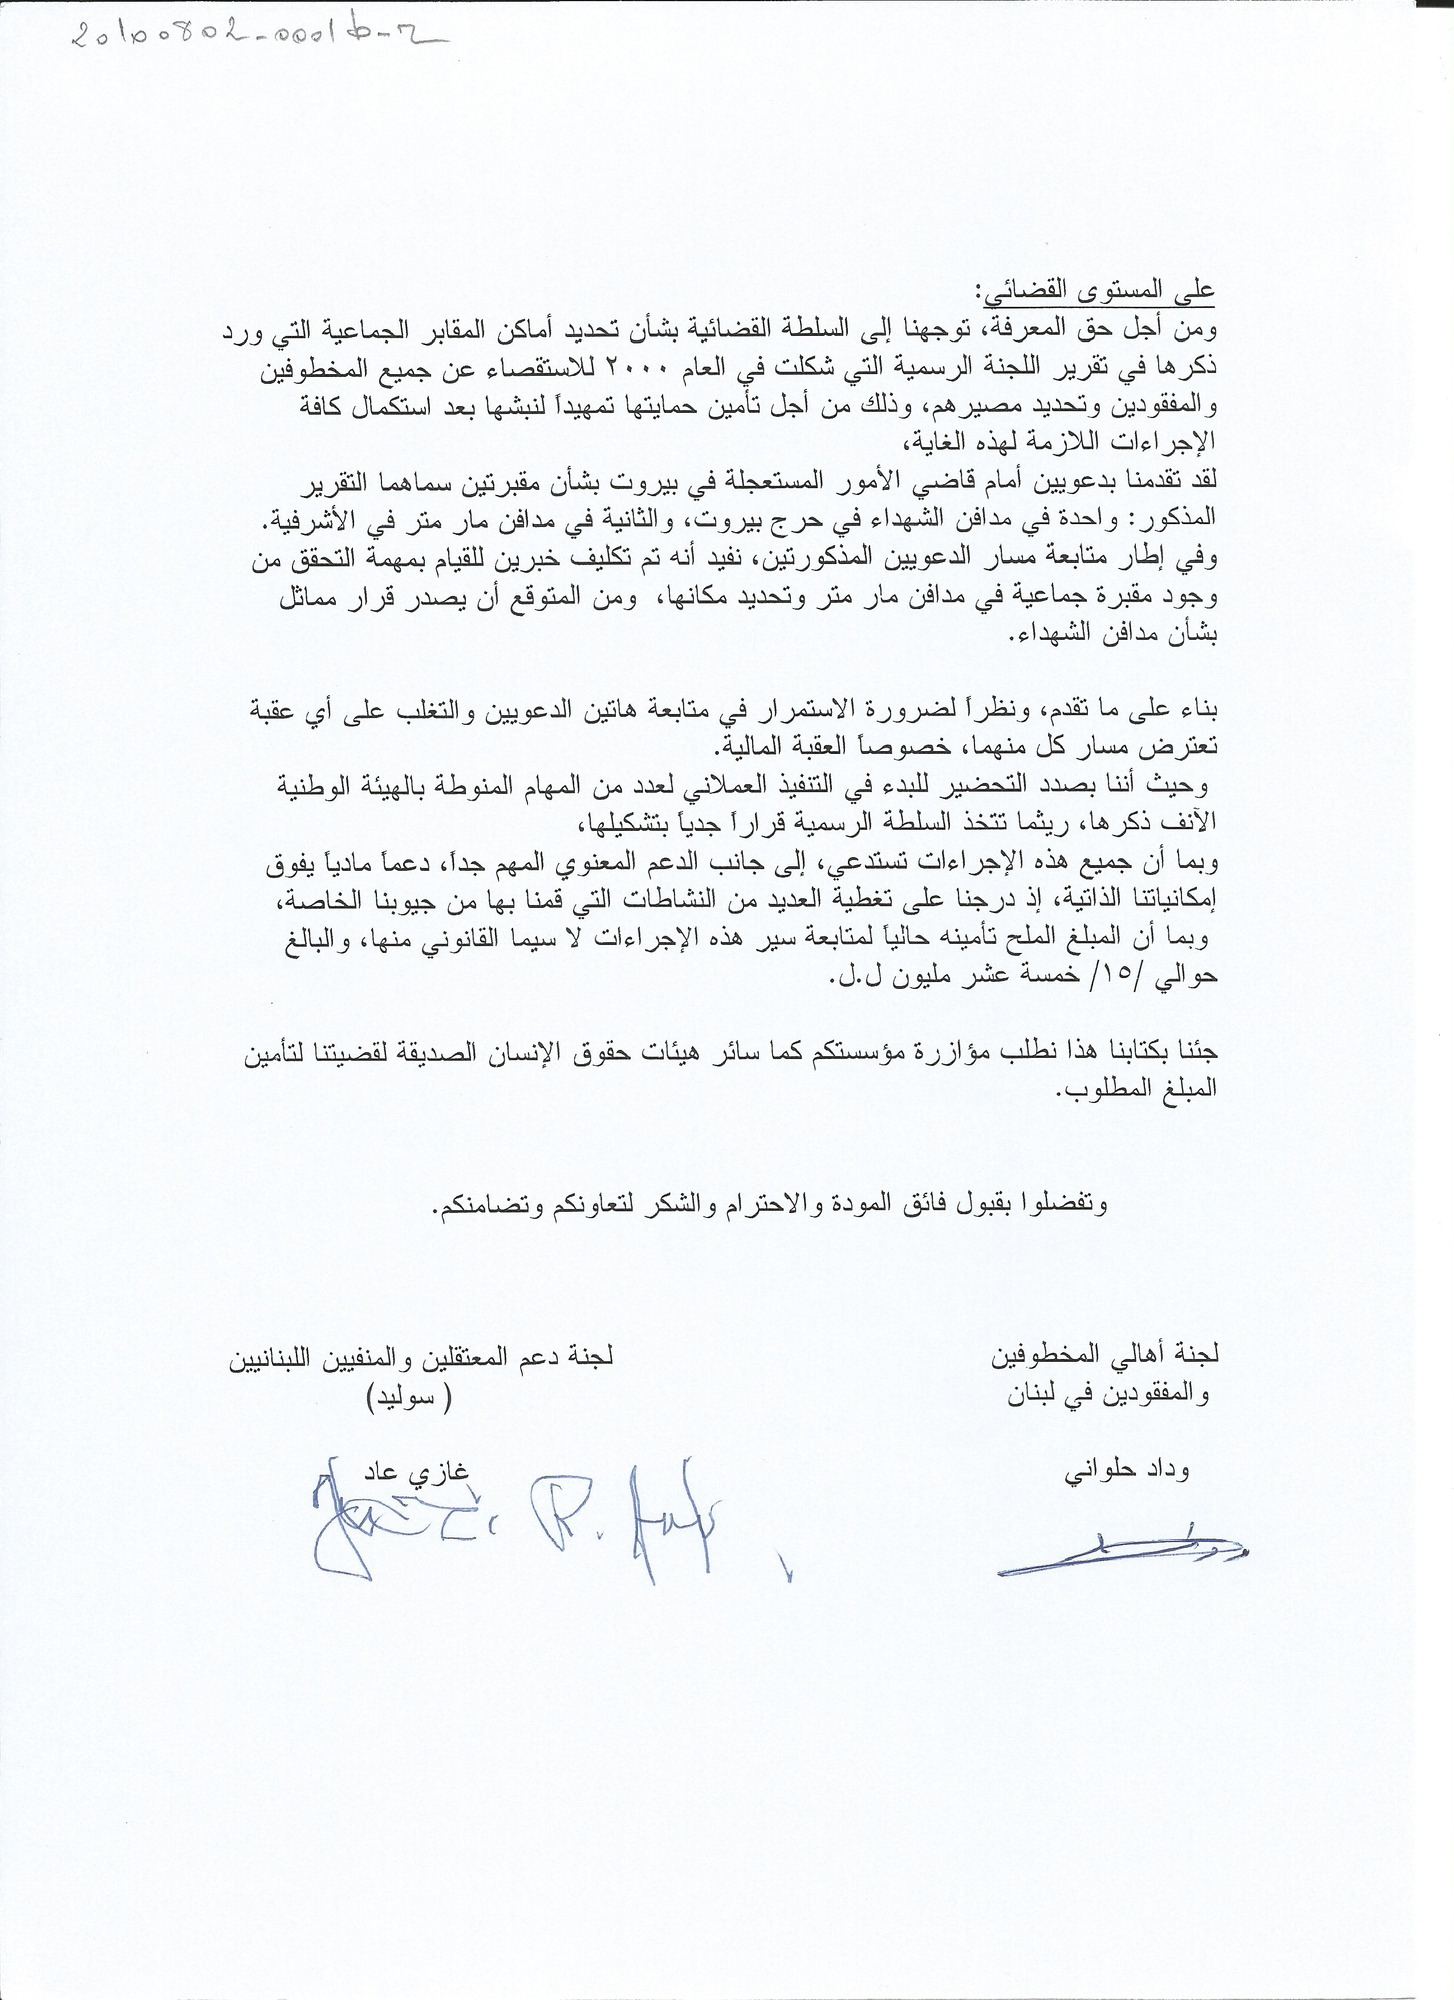 20100802-0001b-r
على المستوى القضائي:
ومن أجل حق المعرفة، توجهنا إلى السلطة القضائية بشأن تحديد أماكن المقابر الجماعية التي ورد
ذكرها في تقرير اللجنة الرسمية التي شكلت في العام ٢٠٠٠ للاستقصاء عن جميع المخطوفين
والمفقودين وتحديد مصيرهم، وذلك من أجل تأمين حمايتها تمهيداً لنبشها بعد استكمال كافة
الإجراءات اللازمة لهذه الغاية،
لقد تقدمنا بدعويين أمام قاضي الأمور المستعجلة في بيروت بشأن مقبرتين سماهما التقرير
المذكور: واحدة في مدافن الشهداء في حرج بيروت، والثانية في مدافن مار متر في الأشرفية.
وفي إطار متابعة مسار الدعويين المذكورتين، نفيد أنه تم تكليف خبرين للقيام بمهمة التحقق من
وجود مقبرة جماعية في مدافن مار متر وتحديد مكانها، ومن المتوقع أن يصدر قرار مماثل
بشأن مدافن الشهداء.
بناء على ما تقدم، ونظراً لضرورة الاستمرار في متابعة هاتين الدعويين والتغلب على أي عقبة
تعترض مسار كل منهما، خصوصاً العقبة المالية.
وحيث أننا بصدد التحضير للبدء في التنفيذ العملاني لعدد من المهام المنوطة بالهيئة الوطنية
الآنف ذكرها، ريثما تتخذ السلطة الرسمية قراراً جدياً بتشكيلها،
وبما أن جميع هذه الإجراءات تستدعي، إلى جانب الدعم المعنوي المهم جداً، دعماً مادياً يفوق
إمكانياتنا الذاتية، إذ درجنا على تغطية العديد من النشاطات التي قمنا بها من جيوبنا الخاصة،
وبما أن المبلغ الملح تأمينه حالياً لمتابعة سير هذه الإجراءات لا سيما القانوني منها، والبالغ
حوالي /١٥/ خمسة عشر مليون ل.ل.
جئنا بكتابنا هذا نطلب مؤازرة مؤسستكم كما سائر هيئات حقوق الإنسان الصديقة لقضيتنا لتأمين
المبلغ المطلوب.
وتفضلوا بقبول فائق المودة والاحترام والشكر لتعاونكم وتضامنكم.
لجنة أهالي المخطوفين
والمفقودين في لبنان
وداد حلواني
لجنة دعم المعتقلين والمنفيين اللبنانيين
( سوليد)
غازي عاد